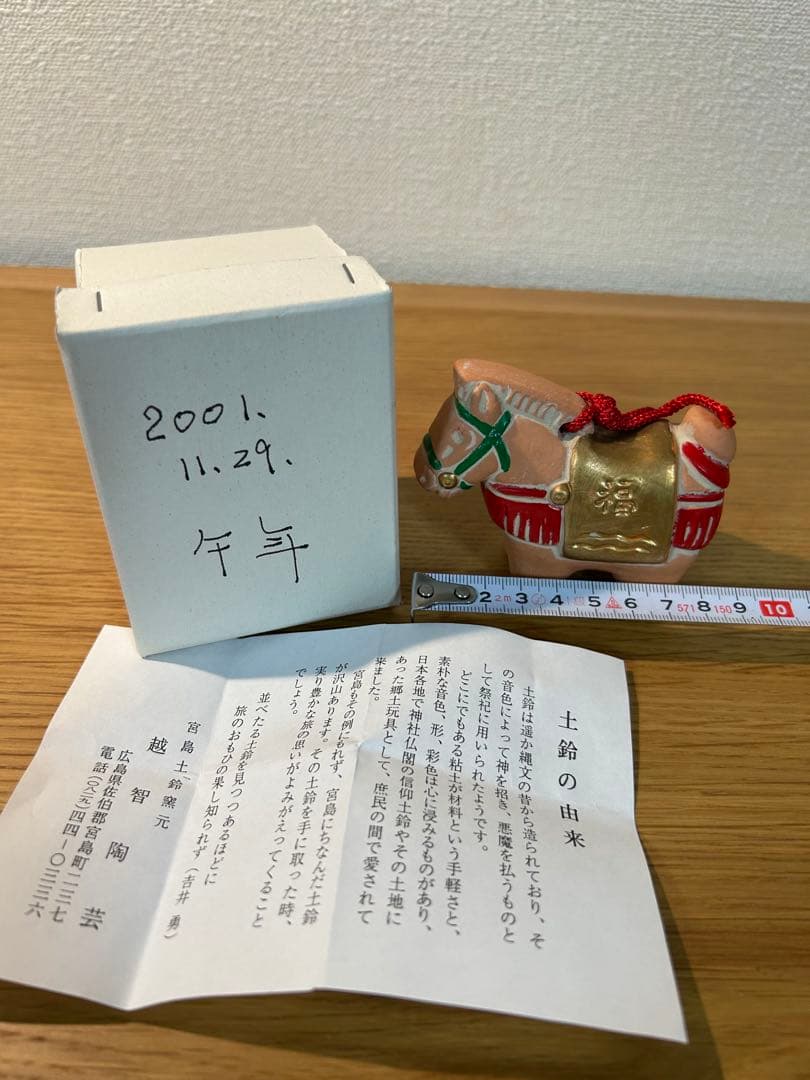 2001.
11.29.
午年
福
2m 3 4 5 6 7 571 8 150 9 10
土鈴の由来
土鈴は遥か縄文の昔から造られており、そ
の音色によって神を招き、悪魔を払うものと
して祭祀に用いられたようです。
どこにでもある粘土が材料という手軽さと、
素朴な音色、形、彩色は心に浸みるものがあり、
日本各地で神社仏閣の信仰土鈴やその土地に
あった郷土玩具として、庶民の間で愛されて
来ました。
宮島もその例にもれず、宮島にちなんだ土鈴
が沢山あります。その土鈴を手に取った時、
実り豊かな旅の思いがよみがえってくること
でしょう。
並べたる土鈴を見つつあるほどに
旅のおもひの果し知られず(吉井 勇)
宮島土鈴窯元
越智陶芸
広島県佐伯郡宮島町一二三七
電話(〇八二九)四四―〇三三六